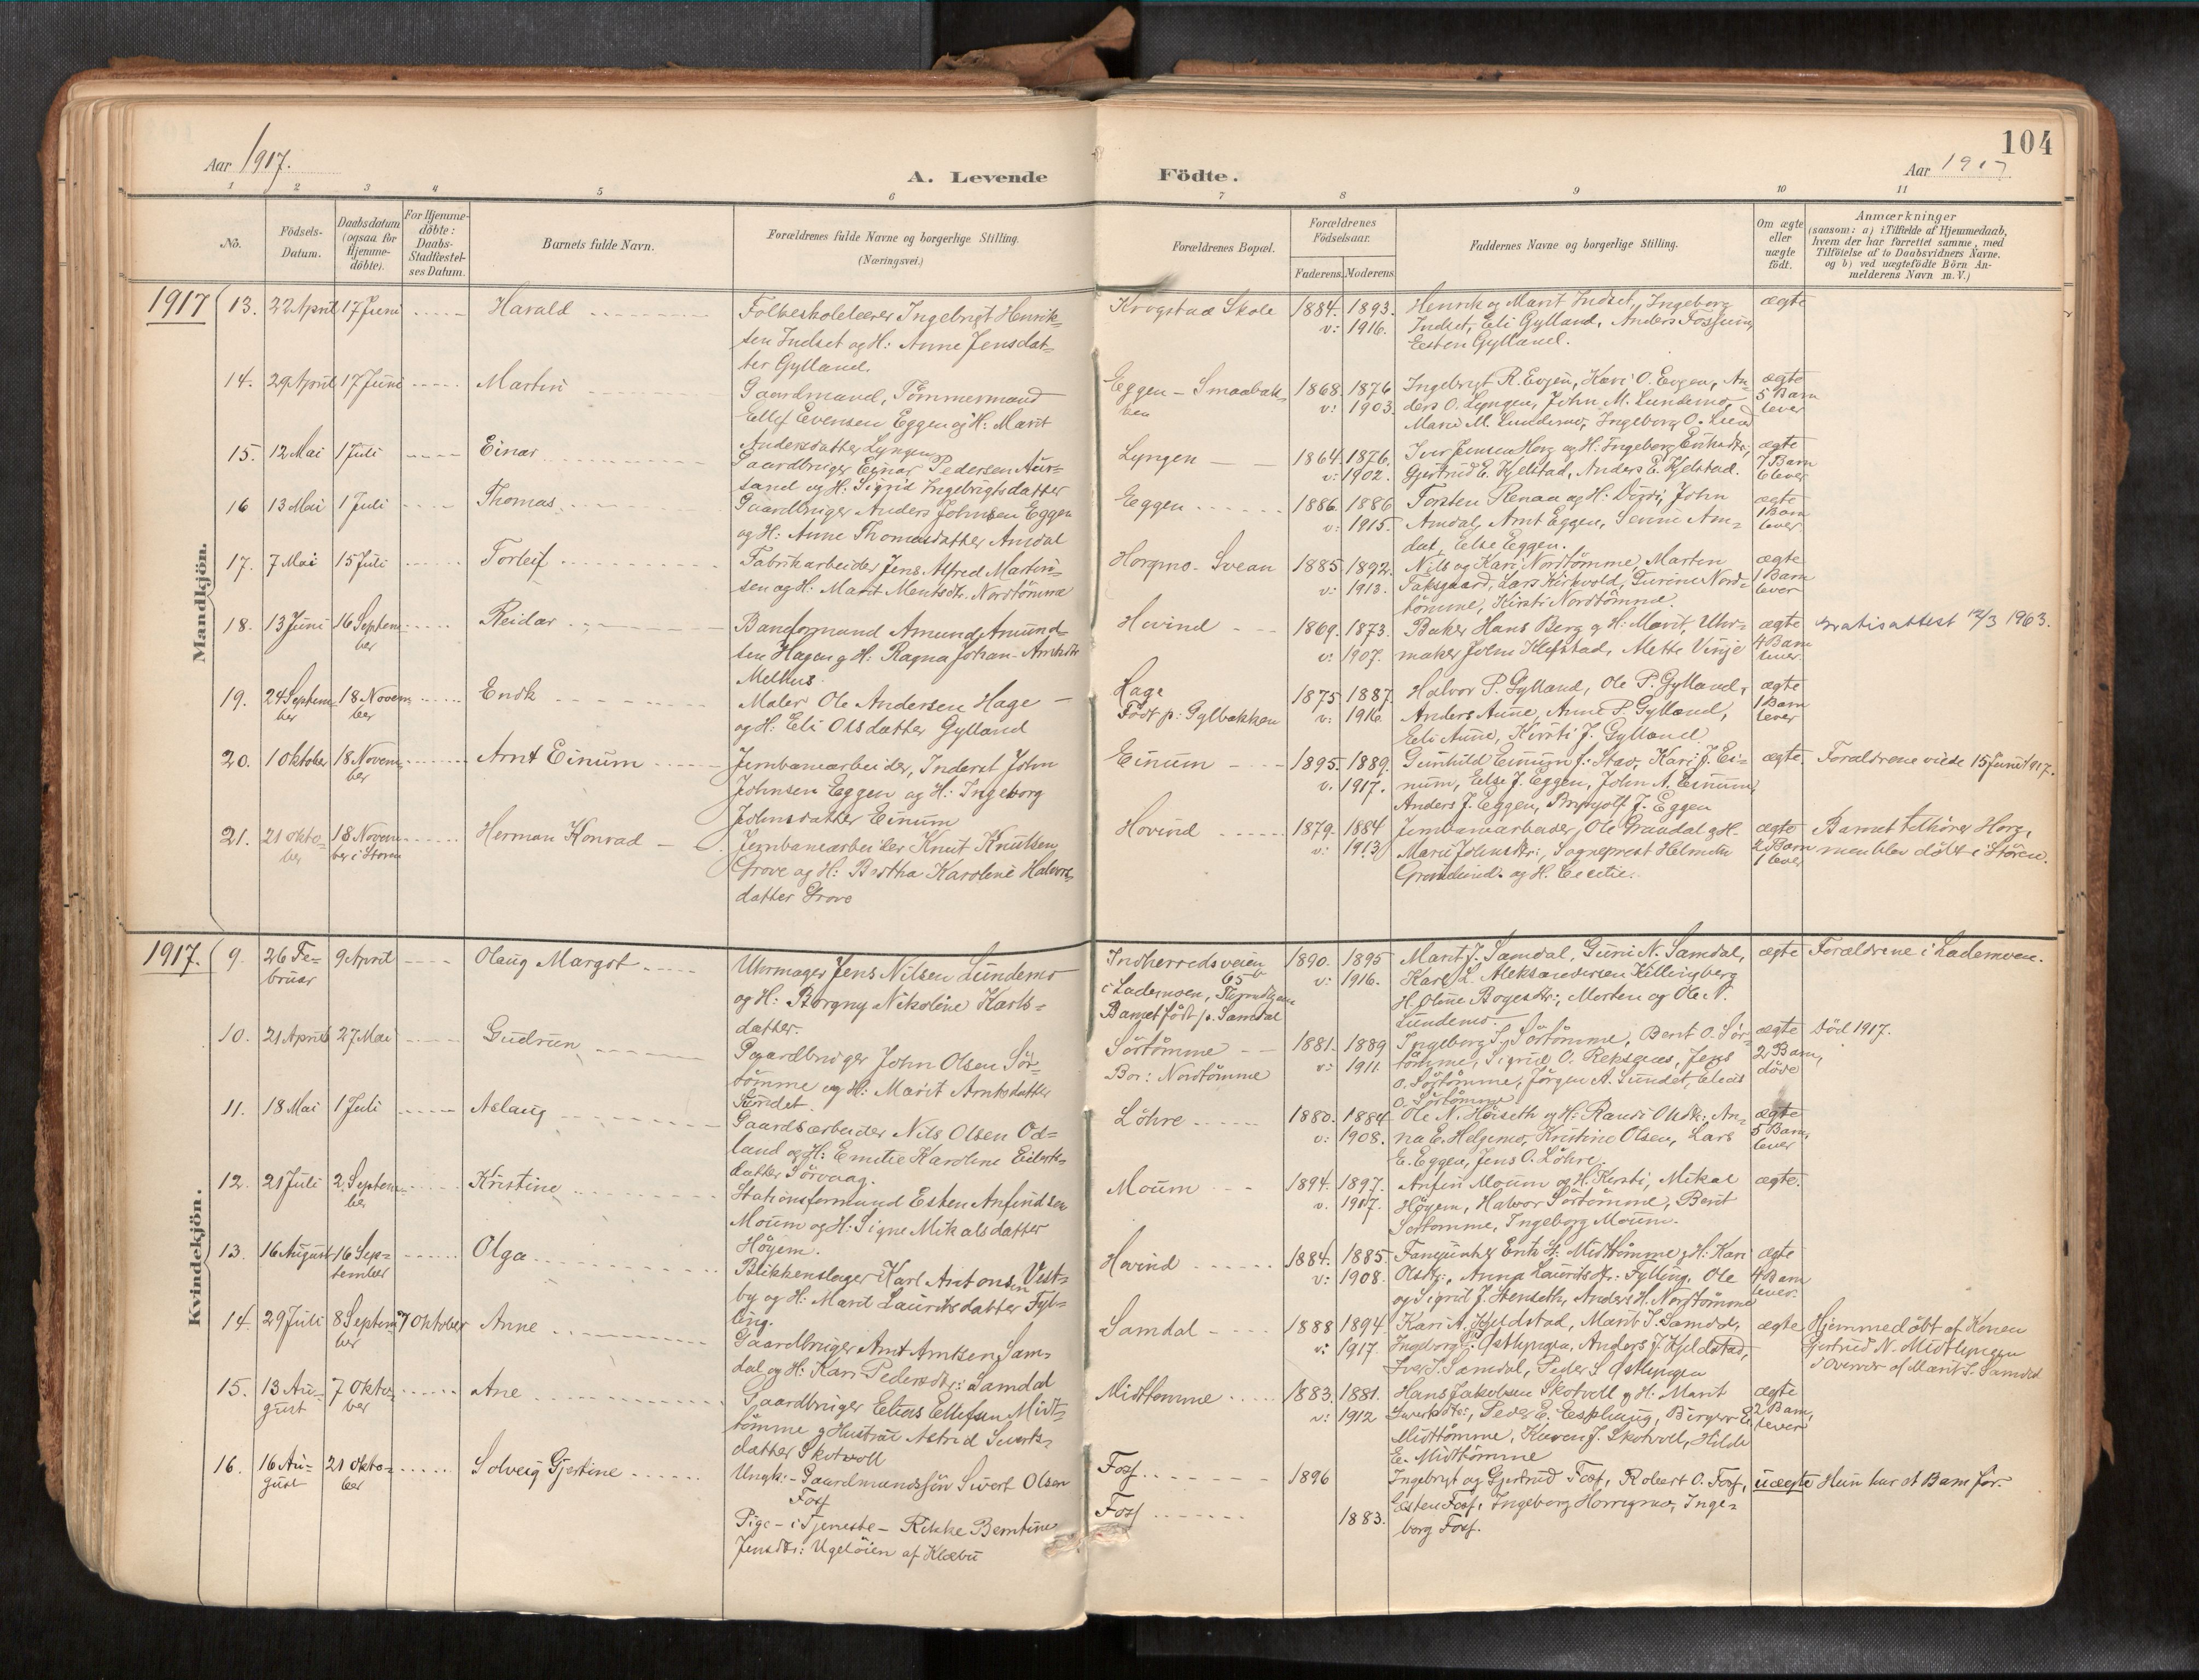 104
Aar 1917.
A. Levende Födte.
Aar 1917
1 2 3 4 5 6 7 8 9 10 11
No.
Födsels-
Datum.
Daabsdatum
(ogsaa for
Hjemme-
döbte).
For Hjemme-
döbte:
Daabs-
Stadfæstel-
ses Datum.
Barnets fulde Navn.
Forældrenes fulde Navne og borgerlige Stilling.
(Næringsvei.)
Forældrenes Bopæl.
Forældrenes
Födselsaar.
Faderens. Moderens.
Faddernes Navne og borgerlige Stilling.
Om ægte
eller
uægte
födt.
Anmærkninger
(saasom: a) i Tilfælde af Hjemmedaab,
hvem der har forrettet samme, med
Tilföielse af to Daabsvidners Navne.
og b) ved uægtefödte Börn An-
melderens Navn m. V.)
Mandkjön.
1917
13. 22 April 17 Juni Harald
Folkeskolelærer Ingebrigt Henrik-
sen Indset og H: Anne Jensdat-
ter Gylland.
Krogstad Skole
1884. 1893.
v: 1916.
Henrik og Marit Indset, Ingeborg
Indset, Eli Gylland, Anders Fossum,
Esten Gylland.
ægte
14. 29 April 17 Juni Martin
Gaardmand, Tömmermand
Ellef Evensen Eggen og H: Marit
Andersdatter Lyngen
Eggen - Smaabak-
ken
1868. 1876
v: 1903.
Ingebrigt R. Evjen, Kari O. Evjen, An-
ders O. Lyngen, John M. Lundemo,
Marie M. Lundemo, Ingeborg O. Lund
ægte
5 Barn
lever
15. 12 Mai 1 Juli Einar
Gaardbruger Einar Pedersen Aur-
sand og H: Sigrid Ingebrigtsdatter
Lyngen
1864. 1876.
v: 1902.
Iver Jensen Horg og H: Ingeborg
Gjertrud E. Kjelstad, Anders E. Kjelstad.
ægte
7 Barn
6 lever
16 13 Mai 1 Juli Thomas
Gaardbruger Anders Johnsen Eggen
og H: Anne Thomasdatter Amdal
Eggen
1886. 1886
v: 1915.
Torsten Renaa og H: John
Amdal, Arnt Eggen, Am-
dal, Else Eggen.
ægte
1 Barn
lever
17. 7 Mai 15 Juli Torleif
Fabrikarbeider Jens Alfred Martin-
sen og H: Marit Mentsdtr. Nordtömme
Horgmo - Svean
1885 1892.
v: 1913.
Nils og Kari Nordtömme, Marten
Taksgaard, Lars Kirkvold, Gurine Nord-
tömme, Kirsti Nordtömme.
ægte
1 Barn
lever
18. 13 Juni 16 Septem-
ber
Reidar
Baneformand Amund Amund-
sen Hagen og H: Ragna Johan-Arntsdtr
Melhus.
Hovind
1869. 1873.
v: 1907.
Baker Hans Berg og H: Marit, Uhr-
maker John Klefstad, Mette Vinje
ægte
4 Barn
lever
Gratisattest 12/3 1963.
19. 24 Septem-
ber
18 Novem-
ber
Endk
Maler Ole Andersen Hage
og H: Eli Olsdatter Gylland
Hage
Födt p: Gylbakken
1875 1887.
v: 1916.
Halvor P. Gylland, Ole P. Gylland,
Anders Aune, Anne P. Gylland,
Eli Aune, Kirsti J. Gylland
ægte
1 Barn
lever
20. 1 Oktober 18 Novem-
ber
Arnt Einum
Jernbanearbeider, Inderst John
Johnsen Eggen og H: Ingeborg
Johnsdatter Einum
Einum
1895. 1889.
v. 1917.
Gunhild Einum f: Stav, Kari J. Ei-
num, Else J. Eggen, John A. Einum,
Anders J. Eggen, Brynjolf J. Eggen
ægte.
Forældrene viede 15 Juni 1917.
21. 21 Okto-
ber
18 Novem-
ber i Stören
Herman Konrad
Jernbanearbeider Knut Knutsen
Grove og H: Bertha Karoline Halvors-
datter Grove
Hovind
1879. 1884
v: 1913
Jernbanearbeider Ole Graudal og H.
Marie Johnsdtr:, Sogneprest Helmuth
Gromlund. og H. Cecilie.
ægte
2 Barn
1 lever
Barnet tilhörer Horg,
men blev döbt i Stören.
Kvindekjön.
1917.
9. 26 Fe-
bruar
9 April Olaug Margot
Uhrmager Jens Nilsen Lundemo
og H: Borgny Nikoline Karls-
datter.
Indherredsveien
65 b
i Lademoen, Trondhjem
Barnet födt p. Samdal
1890. 1895
v: 1916.
Marit J. Samdal, Guni N. Samdal,
Karl L. Aleksandersen Killingberg
H. Oline Bogesdtr:, Morten og Ole N.
Lundemo.
ægte
Forældrene i Lademoen.
10. 21 April 27 Mai Gudrun
Gaardbruger John Olsen Sör-
tömme og H: Marit Arntsdatter
Sundet.
Sörtömme
Bor: Nordtömme
1881. 1889
v: 1911.
Ingeborg S. Sörtömme, Berit O. Sör-
tömme, Sigrid O. Reksnæs, Jens
O. Sörtömme, Jörgen A. Sundet, Elias
O. Sörtömme.
ægte
2 Barn,
döde
Död 1917.
11. 18 Mai 1 Juli Aslaug
Gaardsarbeider Nils Olsen Od-
land og H: Emilie Karoline Eilerts-
datter Sörvaag.
Löhre
1880. 1884
v: 1908.
Ole N. Höiseth og H: Randi Olsdtr: An-
na E. Helgemo, Kristine Olsen, Lars
E. Eggen, Jens O. Löhre.
ægte
5 Barn,
lever
12. 21 Juli 2 Septem-
ber
Kristine
Stationsformand Esten Anfindsen
Moum og H: Signe Mikalsdatter
Höyem.
Moum
1894. 1897.
v. 1917.
Anfin Moum og H. Kirsti, Mikal
Höyem, Halvor Sörtömme, Berit
Sörtömme, Ingeborg Moum.
ægte.
13. 16 August 16 Sep-
tember
Olga
Blikkenslager Karl Antonsen Vest-
by og H: Marit Lauritsdatter Fyl-
ling.
Hovind
1884. 1885.
v: 1908.
Fanejunker Erik H. Midttömme og H: Kari
Olsdtr:, Anna Lauritsdtr: Fylling. Ole
og Sigrid J. Stenseth, Anders H. Nordtömme
ægte
4 Barn
lever.
14. 29 Juli 8 Septem-
ber
7 Oktober Anne
Gaardbruger Arnt Arntsen Sam-
dal og H: Kari Pedersdtr: Samdal
Samdal
1888 1894
v: 1917.
Kari A. Kjeldstad, Marit I. Samdal,
Ingeborg Östlyngen, Anders J. Kjeldstad,
Iver I. Samdal, Peder S. Östlyngen
ægte
Hjemmedöbt af Konen
Gjertrud N. Midtlyngen
i Overvær af Marit I. Samdal
15. 13 Au-
gust
7 Okto-
ber
Ane
Gaardbruger Elias Ellefsen Midt-
tömme og Hustru Astrid Siverts-
datter Skotvoll
Midttömme
1883. 1881.
v: 1912
Hans Jakobsen Skotvoll og H: Marit
Sivertsdtr:, Peder E. Esphaug, Birger E.
Midttömme, Karen J. Skotvoll, Hilde
E. Midttömme
ægte
2 Barn,
lever
16. 16 Au-
gust
21 Okto-
ber
Solveig Gjertine
Ungk:- Gaardmandssön Sivert Olsen
Foss
Pige - i Tjeneste - Rikke Berntine
Jensdtr: Ugelöien af Klæbu
Foss
Foss
1896
1883.
Ingebrigt og Gjertrud Foss, Robert O. Foss,
Esten Foss, Ingeborg Horrigmo, Inge-
borg Foss.
uægte
Hun har et Barn för.